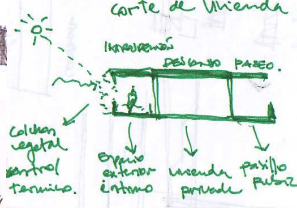 corte de vivienda
INTROSPECCIÓN
DESCANSO PASEO.
Colchon
vegetal
control
termico.
Espacio
exterior
íntimo
vivienda
privada
pasillo